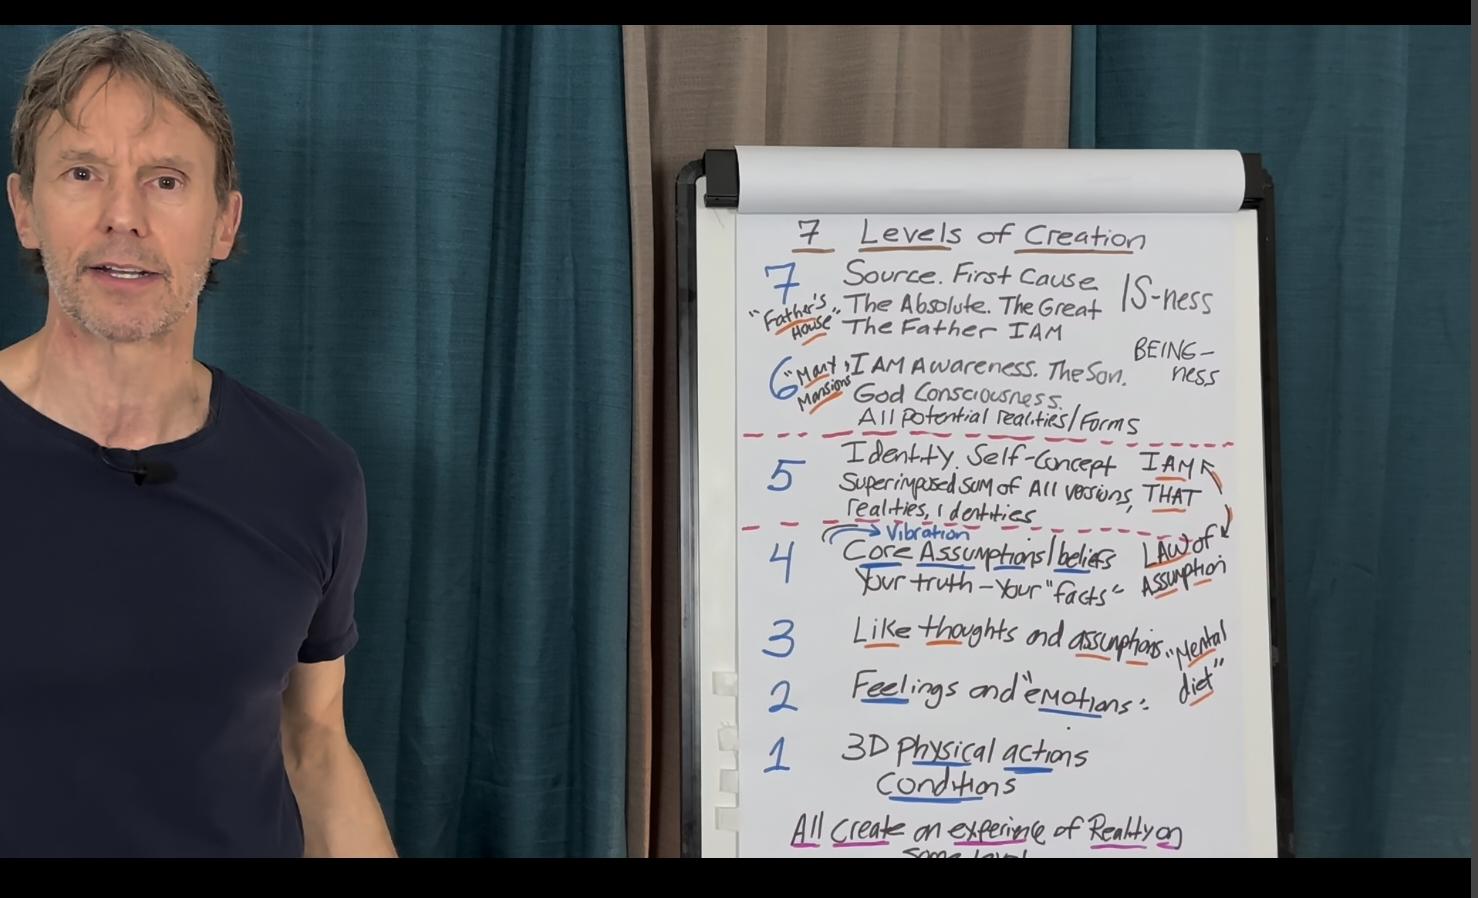 7 Levels of Creation
7 Source. First Cause IS-ness
"Father's House" The Absolute. The Great
The Father IAM
BEING-ness
6 "Many Mansions" I AM Awareness. The Son.
God Consciousness.
All potential realities/Forms
5 Identity. Self-Concept I AM
Superimposed sum of All versions, THAT
realities, Identities
Vibration
4 Core Assumptions/beliefs LAW of
Your truth - Your "facts" Assumption
3 Like thoughts and assumptions. "Mental
diet"
2 Feelings and "emotions".
1 3D physical actions
Conditions
All create an experience of Reality on
some level